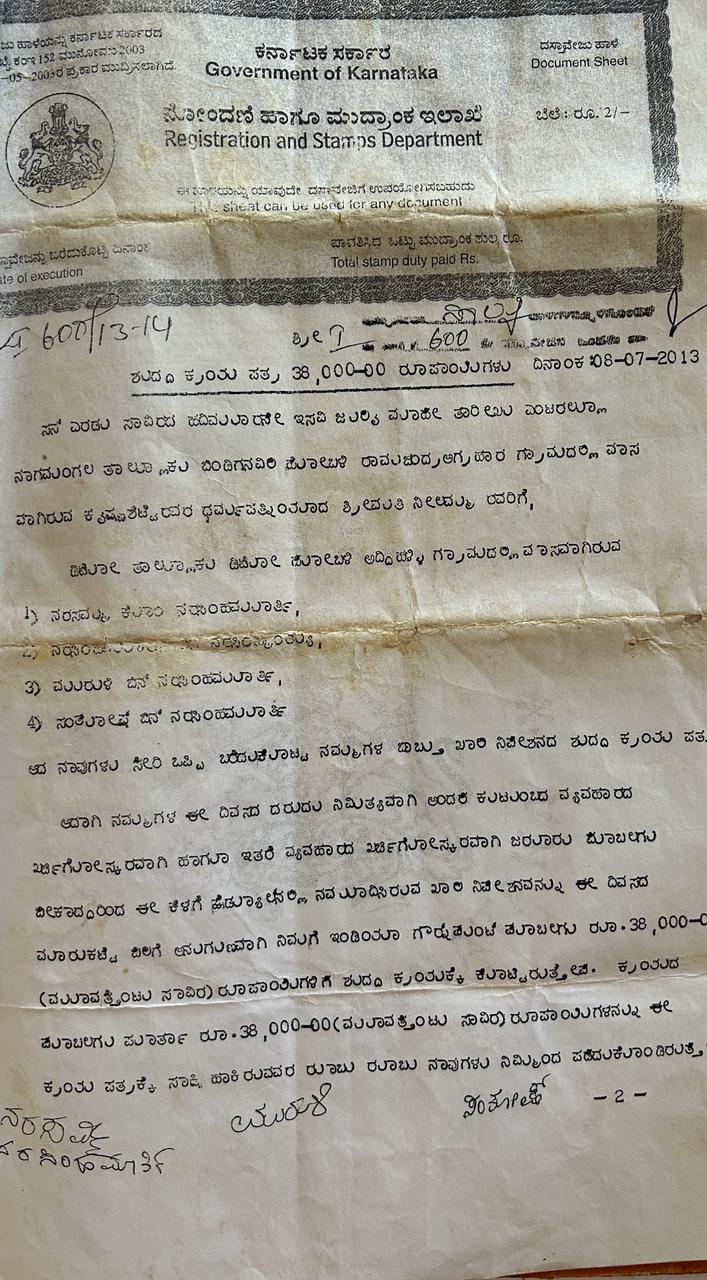 ಕರ್ನಾಟಕ ಸರ್ಕಾರ
Government of Karnataka
ದಸ್ತಾವೇಜು ಹಾಳೆ
Document Sheet
ನೋಂದಣಿ ಹಾಗೂ ಮುದ್ರಾಂಕ ಇಲಾಖೆ
Registration and Stamps Department
ಬೆಲೆ : ರೂ. 2/-
ಈ ಹಾಳೆಯನ್ನು ಯಾವುದೇ ದಸ್ತಾವೇಜಿಗೆ ಉಪಯೋಗಿಸಬಹುದು
This sheet can be used for any document
ಪಾವತಿಸಿದ ಒಟ್ಟು ಮುದ್ರಾಂಕ ಶುಲ್ಕ ರೂ.
Total stamp duty paid Rs.
of execution
600/13-14
600
ಶುದ್ಧ ಕ್ರಯ ಪತ್ರ 38,000-00 ರೂಪಾಯಿಗಳು ದಿನಾಂಕ:08-07-2013
ಸನ್ ಎರಡು ಸಾವಿರದ ಹದಿಮೂರನೇ ಇಸವಿ ಜುಲೈ ಮಾಹೇ ತಾರೀಖು ಎಂಟರಲ್ಲೂ
ನಾಗಮಂಗಲ ತಾಲ್ಲೂಕು ಬಿಂಡಿಗನವಿಲೆ ಹೋಬಳಿ ರಾಮಚಂದ್ರಅಗ್ರಹಾರ ಗ್ರಾಮದಲ್ಲಿ ವಾಸ
ವಾಗಿರುವ ಕೃಷ್ಣಶೆಟ್ಟಿರವರ ಧರ್ಮಪತ್ನಿಯಾದ ಶ್ರೀಮತಿ ನೀಲಮ್ಮ ರವರಿಗೆ,
ತಾಲ್ಲೂಕು ಹೋಬಳಿ ಅದ್ದಿಹಳ್ಳಿ ಗ್ರಾಮದಲ್ಲಿ ವಾಸವಾಗಿರುವ
1) ನರಸಮ್ಮ ಕೋಂ ನರಸಿಂಹಮೂರ್ತಿ,
2)
3) ಮುರುಳಿ ಬಿನ್ ನರಸಿಂಹಮೂರ್ತಿ,
4) ಸಂತೋಷ ಬಿನ್ ನರಸಿಂಹಮೂರ್ತಿ
ಆದ ನಾವುಗಳು ಸೇರಿ ಒಪ್ಪಿ ಬರೆದುಕೊಟ್ಟ ನಮ್ಮಗಳ ಬಾಬ್ತು ಖಾಲಿ ನಿವೇಶನದ ಶುದ್ಧ ಕ್ರಯ ಪತ್ರ
ಆದಾಗಿ ನಮ್ಮಗಳ ಈ ದಿವಸದ ದರುದು ನಿಮಿತ್ಯವಾಗಿ ಅಂದರೆ ಕುಟುಂಬದ ವ್ಯವಹಾರದ
ಖರ್ಚಿಗೋಸ್ಕರವಾಗಿ ಹಾಗೂ ಇತರೆ ವ್ಯವಹಾರದ ಖರ್ಚಿಗೋಸ್ಕರವಾಗಿ ಜರೂರು ಮೊಬಲಗು
ಬೇಕಾದ್ದರಿಂದ ಈ ಕೆಳಗೆ ಷೆಡ್ಯೂಲ್‌ನಲ್ಲಿ ನಮೂದಿಸಿರುವ ಖಾಲಿ ನಿವೇಶನವನ್ನು ಈ ದಿವಸದ
ಮಾರುಕಟ್ಟೆ ಬೆಲೆಗೆ ಅನುಗುಣವಾಗಿ ನಿಮಗೆ ಇಂಡಿಯಾ ಗೌರ್ನಮೆಂಟ್ ಮೊಬಲಗು ರೂ.38,000-0
(ಮೂವತ್ತೆಂಟು ಸಾವಿರ)ರೂಪಾಯಿಗಳಿಗೆ ಶುದ್ಧ ಕ್ರಯಕ್ಕೆ ಕೊಟ್ಟಿರುತ್ತೇವೆ. ಕ್ರಯದ
ಮೊಬಲಗು ಪೂರ್ತಾ ರೂ.38,000-00(ಮೂವತ್ತೆಂಟು ಸಾವಿರ)ರೂಪಾಯಿಗಳನ್ನು ಈ
ಕ್ರಯ ಪತ್ರಕ್ಕೆ ಸಾಕ್ಷಿ ಹಾಕಿರುವವರ ರೂಬು ರೂಬು ನಾವುಗಳು ನಿಮ್ಮಿಂದ ಪಡೆದುಕೊಂಡಿರುತ್ತೆ
- 2 -
ಮುರಳಿ
ಸಂತೋಷ್